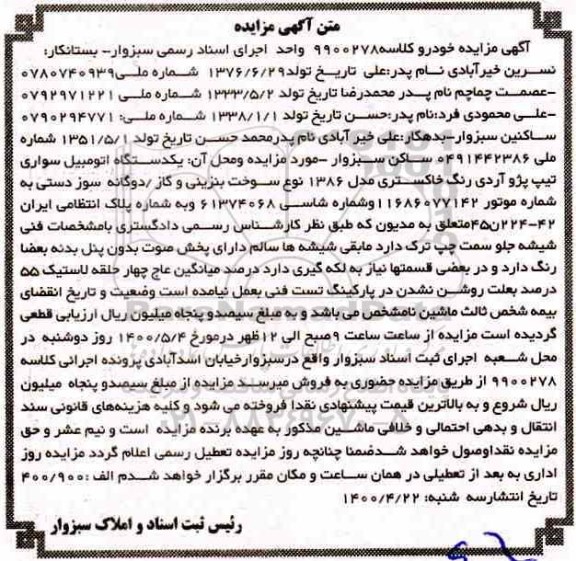 متن آگهی مزایده
آگهی مزایده خودرو کلاسه ۹۹۰۰۲۷۸ واحد اجرای اسناد رسمی سبزوار- بستانکار:
نسرین خیرآبادی نام پدر:علی تاریخ تولد۱۳۷۶/۶/۲۹ شماره ملی۰۷۸۰۷۴۰۹۳۹
-عصمت چماچم نام پدر محمدرضا تاریخ تولد ۱۳۳۳/۵/۲ شماره ملی ۰۷۹۲۹۷۱۲۲۱
-علی محمودی فرد:نام پدر:حسن تاریخ تولد ۱۳۳۸/۱/۱ شماره ملی: ۰۷۹۰۲۹۴۷۷۱
ساکنین سبزوار-بدهکار:علی خیر آبادی نام پدرمحمد حسن تاریخ تولد ۱۳۵۱/۵/۱ شماره
ملی ۰۴۹۱۴۴۲۳۸۶ ساکن سبزوار -مورد مزایده ومحل آن: یکدستگاه اتومبیل سواری
تیپ پژو آردی رنگ خاکستری مدل ۱۳۸۶ نوع سوخت بنزینی و گاز /دوگانه سوز دستی به
شماره موتور ۱۱۶۸۶۰۷۷۱۴۲ وشماره شاسی ۶۱۳۷۴۰۶۸ وبه شماره پلاک انتظامی ایران
۴۲-۲۲۴ن۴۵متعلق به مدیون که طبق نظر کارشناس رسمی دادگستری بامشخصات فنی
شیشه جلو سمت چپ ترک دارد مابقی شیشه ها سالم دارای پخش صوت بدون پنل بدنه بعضا
رنگ دارد و در بعضی قسمتها نیاز به لکه گیری دارد درصد میانگین عاج چهار حلقه لاستیک ۵۵
درصد بعلت روشن نشدن در پارکینگ تست فنی بعمل نیامده است وضعیت و تاریخ انقضای
بیمه شخص ثالث ماشین نامشخص می باشد و به مبلغ سیصدو پنجاه میلیون ریال ارزیابی قطعی
گردیده است مزایده از ساعت ساعت ۹صبح الی ۱۲ظهر درمورخ ۱۴۰۰/۵/۴ روز دوشنبه در
محل شعبه اجرای ثبت اسناد سبزوار واقع درسبزوارخیابان اسدآبادی پرونده اجرائی کلاسه
۹۹۰۰۲۷۸ از طریق مزایده حضوری به فروش میرسد مزایده از مبلغ سیصدو پنجاه میلیون
ریال شروع و به بالاترین قیمت پیشنهادی نقدا فروخته می شود و کلیه هزینه‌های قانونی سند
انتقال و بدهی احتمالی و خلافی ماشین مذکور به عهده برنده مزایده است و نیم عشر و حق
مزایده نقداوصول خواهد شدضمنا چنانچه روز مزایده تعطیل رسمی اعلام گردد مزایده روز
اداری به بعد از تعطیلی در همان ساعت و مکان مقرر برگزار خواهد شدم الف :۴۰۰/۹۰۰
تاریخ انتشارسه شنبه: ۱۴۰۰/۴/۲۲
رئیس ثبت اسناد و املاک سبزوار